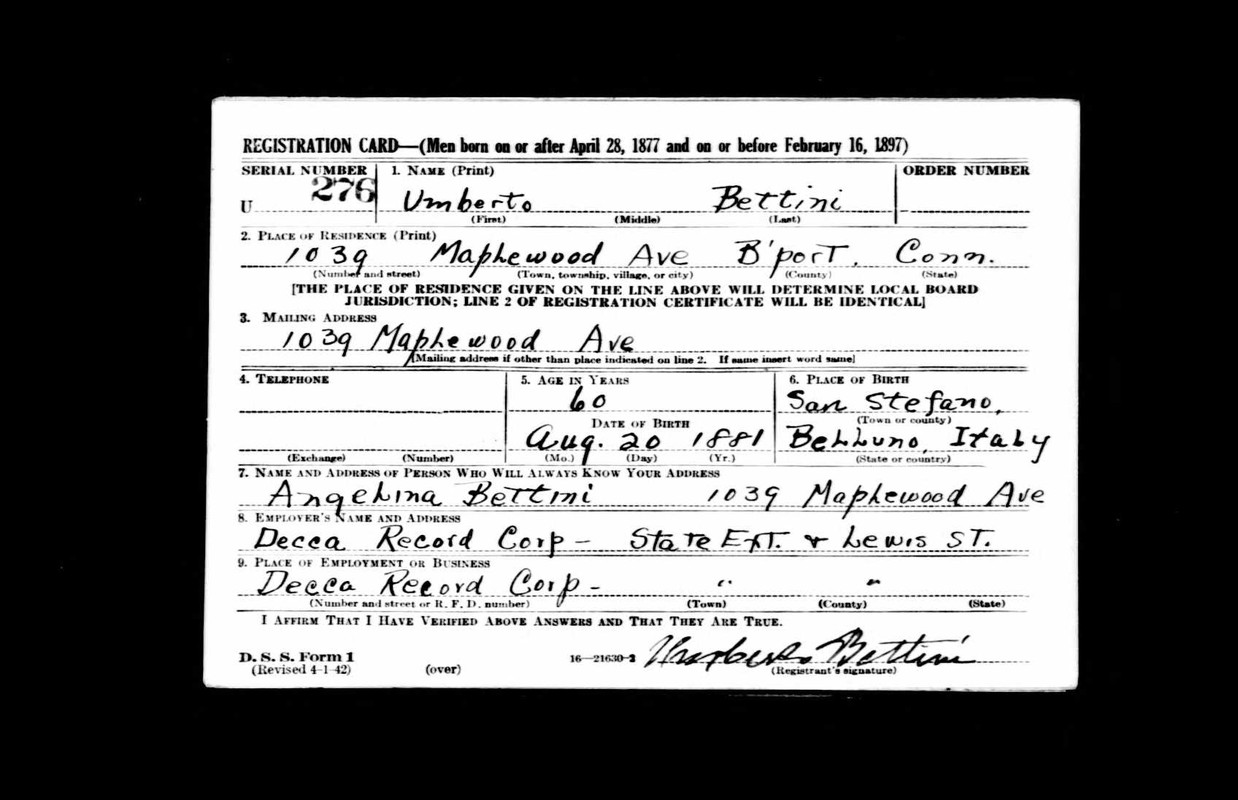 REGISTRATION CARD—(Men born on or after April 28, 1877 and on or before February 16, 1897)
SERIAL NUMBER 1. NAME (Print) ORDER NUMBER
U 276 Umberto Bettini
(First) (Middle) (Last)
2. PLACE OF RESIDENCE (Print)
1039 Maplewood Ave B'port. Conn.
(Number and street) (Town, township, village, or city) (County) (State)
[THE PLACE OF RESIDENCE GIVEN ON THE LINE ABOVE WILL DETERMINE LOCAL BOARD
JURISDICTION; LINE 2 OF REGISTRATION CERTIFICATE WILL BE IDENTICAL]
3. MAILING ADDRESS
1039 Maplewood Ave
[Mailing address if other than place indicated on line 2. If same insert word same]
4. TELEPHONE 5. AGE IN YEARS 6. PLACE OF BIRTH
60 San Stefano,
DATE OF BIRTH (Town or county)
Aug. 20 1881 Belluno, Italy
(Exchange) (Number) (Mo.) (Day) (Yr.) (State or country)
7. NAME AND ADDRESS OF PERSON WHO WILL ALWAYS KNOW YOUR ADDRESS
Angelina Bettini 1039 Maplewood Ave
8. EMPLOYER'S NAME AND ADDRESS
Decca Record Corp - State Ext. & Lewis ST.
9. PLACE OF EMPLOYMENT OR BUSINESS
Decca Record Corp - " "
(Number and street or R. F. D. number) (Town) (County) (State)
I AFFIRM THAT I HAVE VERIFIED ABOVE ANSWERS AND THAT THEY ARE TRUE.
D. S. S. Form 1 16—21630-2 Umberto Bettini
(Revised 4-1-42) (over) (Registrant's signature)